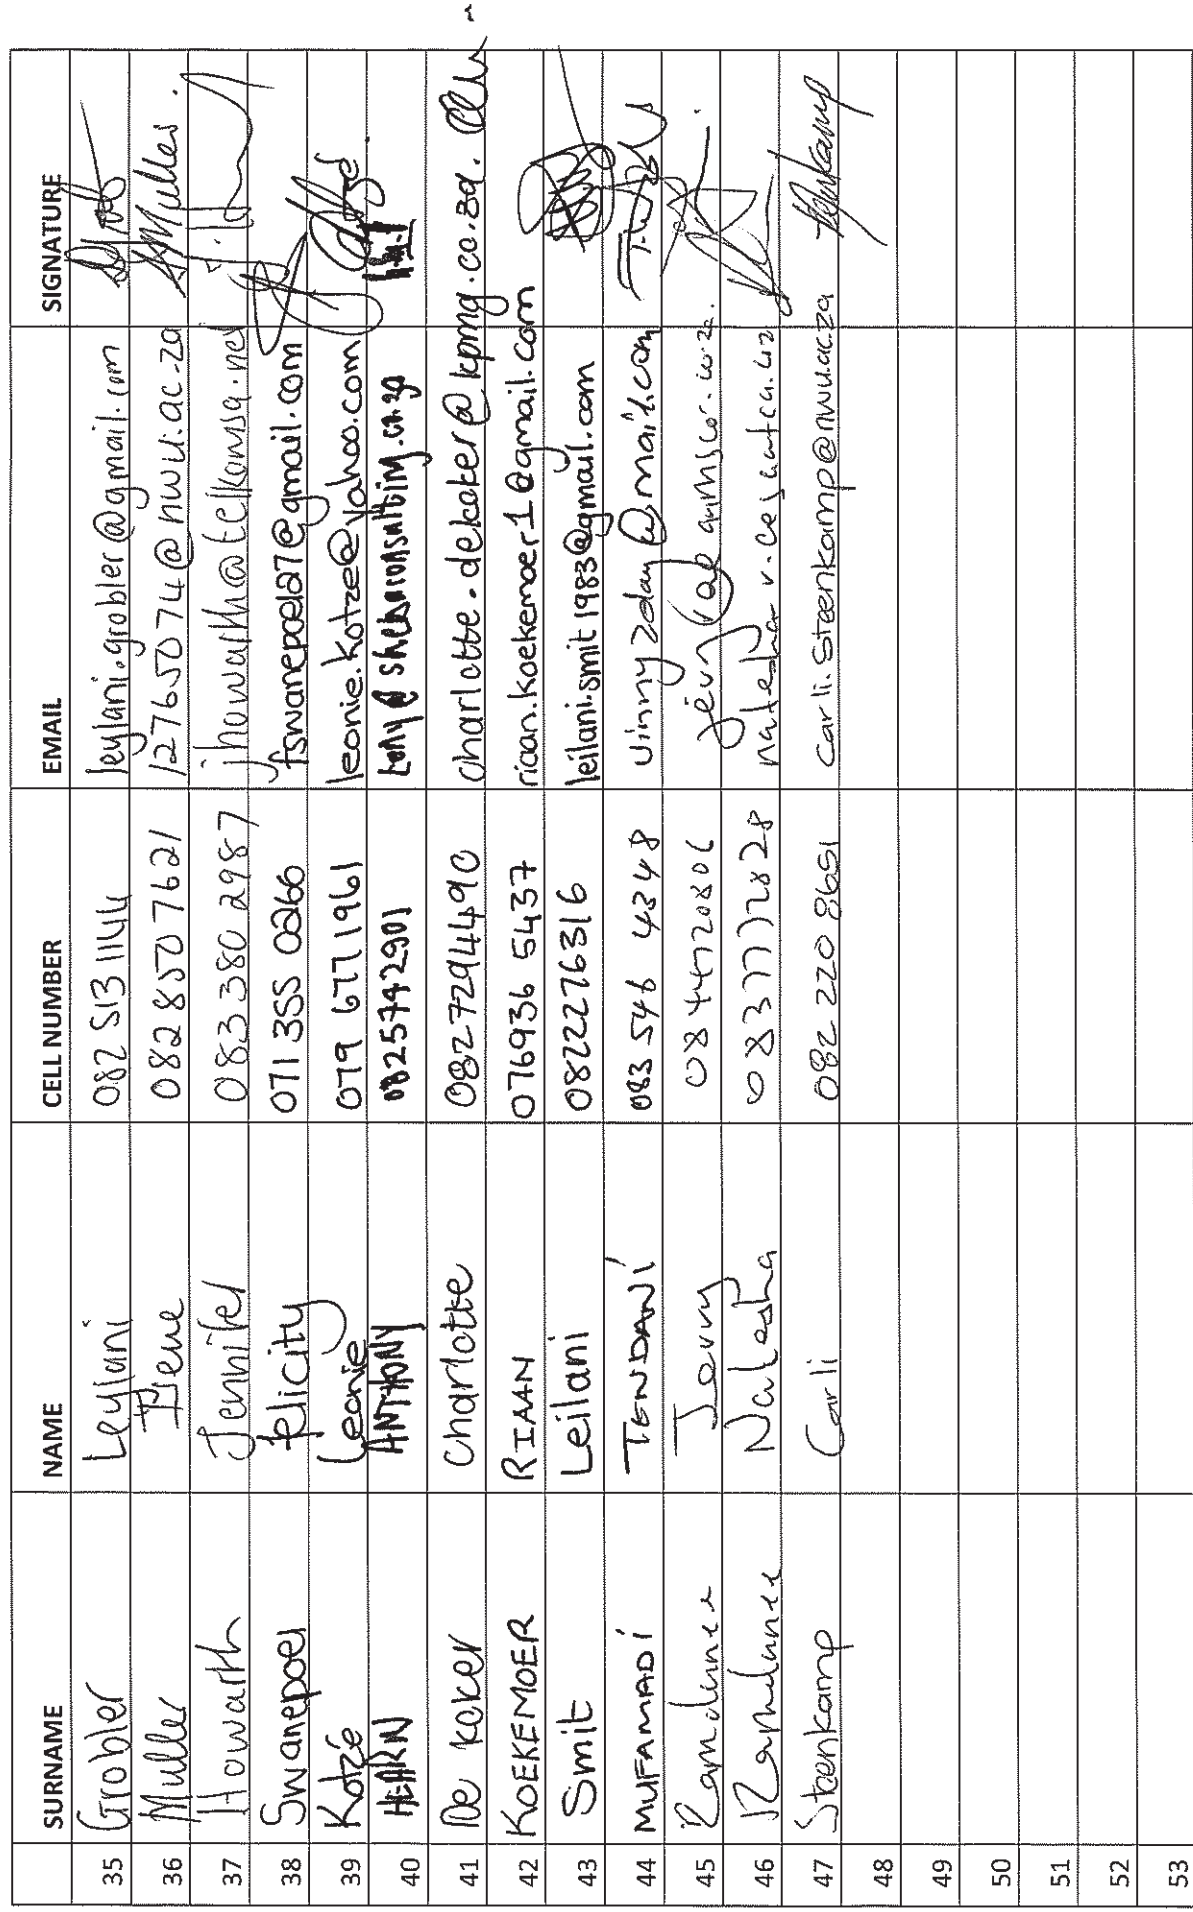 SURNAME NAME CELL NUMBER EMAIL SIGNATURE
35 Grobler Leylani 082 513 1144 leylani.grobler@gmail.com
36 Muller Irene 082 850 7621 12765074@nwu.ac.za Muller
37 Howarth Jennifer 083 380 2987 jhowarth@telkomsa.net
38 Swanepoel Felicity 071 355 0266 fswanepoel27@gmail.com
39 Kotzé Leonie 079 677 1961 leonie.kotze@yahoo.com
40 HEARN ANTHONY 0825742901
41 De Koker Charlotte 0827294490 charlotte.dekoker@kpmg.co.za.
42 KOEKEMOER RIAAN 076936 5437 riaan.koekemoer1@gmail.com
43 Smit Leilani 0822276316 leilani.smit1983@gmail.com
44 MUFAMADI TENDANI 083 546 4348 vinnyzdan@mail.com
45
46 Natesha
47 Steenkamp Carli 082 220 8651 carli.steenkamp@nwu.ac.za Steenkamp
48
49
50
51
52
53